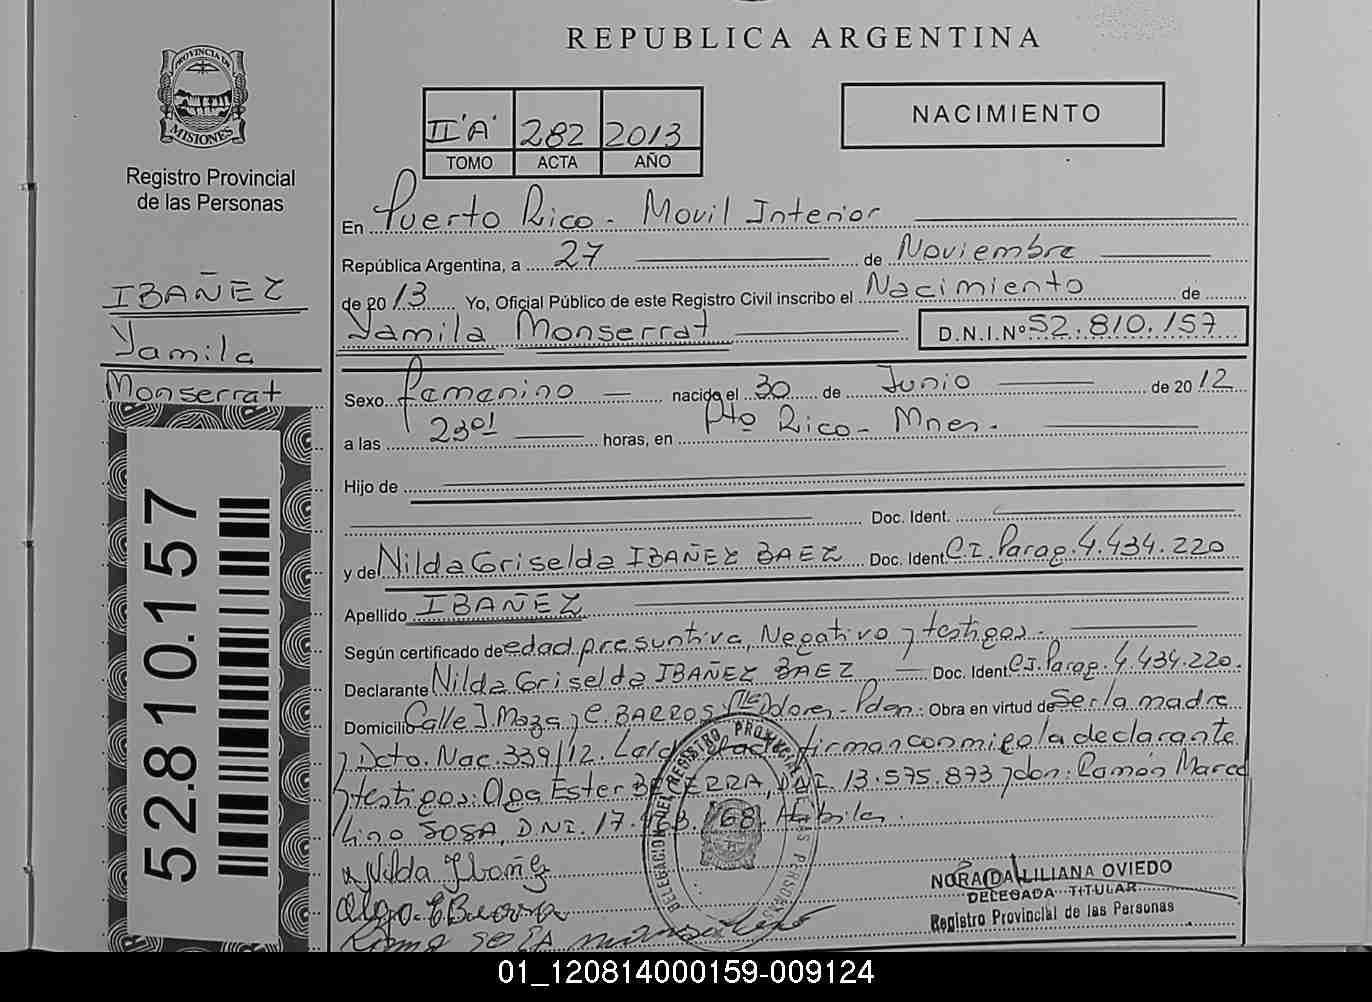 REPUBLICA ARGENTINA
PROVINCIA DE
MISIONES
Registro Provincial
de las Personas
II 'A' 282 2013
TOMO ACTA AÑO
NACIMIENTO
En Puerto Rico - Movil Interior
República Argentina, a 27 de Noviembre
de 2013 Yo, Oficial Público de este Registro Civil inscribo el Nacimiento de
Yamila Monserrat D.N.I.Nº 52.810.157
IBAÑEZ
Yamila
Monserrat
52.810.157
Sexo femenino nacido el 30 de Junio de 2012
a las 23 01 horas, en Pto Rico - Mnes.
Hijo de
Doc. Ident.
y de Nilda Griselda IBAÑEZ BAEZ Doc. Ident. C.I. Parag. 4.434.220
Apellido IBAÑEZ
Según certificado de edad presuntiva, Negativo y testigos.-
Declarante Nilda Griselda IBAÑEZ BAEZ Doc. Ident C.I. Parag. 4.434.220.
Domicilio Calle J. Maza y C. BARROS Obra en virtud de ser la madre
y Dcto. Nac. 339/12. Leída firman conmigo la declarante
y testigos: Olga Ester DNI. 13.575.873 y don: Ramón Marce
lino SOSA, D.N.I. 17. Hábiles.
Nilda Ibañez
DELEGACION DEL REGISTRO PROVINCIAL DE LAS PERSONAS
NORA IDA LILIANA OVIEDO
DELEGADA TITULAR
Registro Provincial de las Personas
01_120814000159-009124